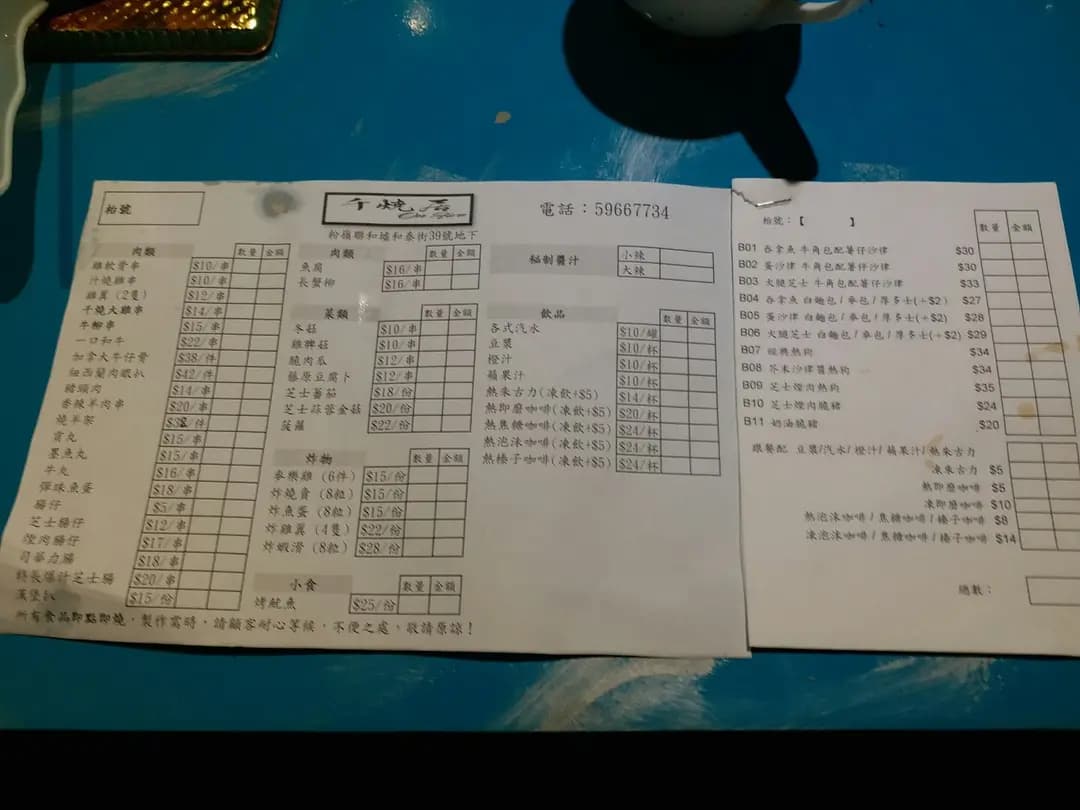 枱號
干燒居
電話：59667734
粉嶺聯和墟和泰街39號地下
肉類 數量 金額
雞軟骨串 $10/串
汁燒雞串 $10/串
雞翼（2隻） $12/串
干燒大雞串 $14/串
牛柳串 $15/串
一口和牛 $22/串
加拿大牛仔骨 $38/件
紐西蘭肉眼扒 $42/件
豬頸肉 $14/串
香辣羊肉串 $20/串
燒羊架 $38/件
貢丸 $15/串
墨魚丸 $15/串
牛丸 $16/串
彈珠魚蛋 $18/串
腸仔 $5/串
芝士腸仔 $12/串
煙肉腸仔 $17/串
司華力腸 $18/串
特長爆汁芝士腸 $20/串
漢堡扒 $15/份
肉類 數量 金額
魚腐 $16/串
長蟹柳 $16/串
菜類 數量 金額
冬菇 $10/串
雞脾菇 $10/串
脆肉瓜 $12/串
藤原豆腐卜 $12/串
芝士蕃茄 $18/份
芝士蒜蓉金菇 $20/份
菠蘿 $22/份
炸物 數量 金額
麥樂雞（6件） $15/份
炸燒賣（8粒） $15/份
炸魚蛋（8粒） $15/份
炸雞翼（4隻） $22/份
炸蝦滑（8粒） $28/份
小食 數量 金額
烤魷魚 $25/份
秘制醬汁 小辣
大辣
飲品 數量 金額
各式汽水 $10/罐
豆漿 $10/杯
橙汁 $10/杯
蘋果汁 $10/杯
熱朱古力(凍飲+$5) $14/杯
熱即磨咖啡(凍飲+$5) $20/杯
熱焦糖咖啡(凍飲+$5) $24/杯
熱泡沫咖啡(凍飲+$5) $24/杯
熱榛子咖啡(凍飲+$5) $24/杯
所有食品即點即燒，製作需時，請顧客耐心等候，不便之處，敬請原諒！
枱號：【 】 數量 金額
B01 吞拿魚 牛角包配薯仔沙律 $30
B02 蛋沙律 牛角包配薯仔沙律 $30
B03 火腿芝士 牛角包配薯仔沙律 $33
B04 吞拿魚 白麵包 / 麥包 / 厚多士(+$2) $27
B05 蛋沙律 白麵包 / 麥包 / 厚多士(+$2) $28
B06 火腿芝士 白麵包 / 麥包 / 厚多士(+$2) $29
B07 經典熱狗 $34
B08 芥末沙律醬熱狗 $34
B09 芝士煙肉熱狗 $35
B10 芝士煙肉脆豬 $24
B11 奶油脆豬 $20
跟餐配 豆漿/汽水/橙汁/蘋果汁/熱朱古力
凍朱古力 $5
熱即磨咖啡 $5
凍即磨咖啡 $10
熱泡沫咖啡 / 焦糖咖啡 / 榛子咖啡 $8
凍泡沫咖啡 / 焦糖咖啡 / 榛子咖啡 $14
總數：